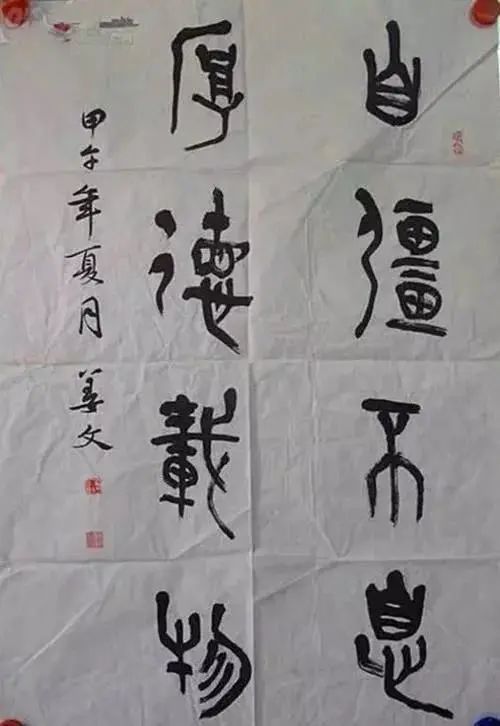 自彊不息
厚德載物
甲午年夏月 姜文